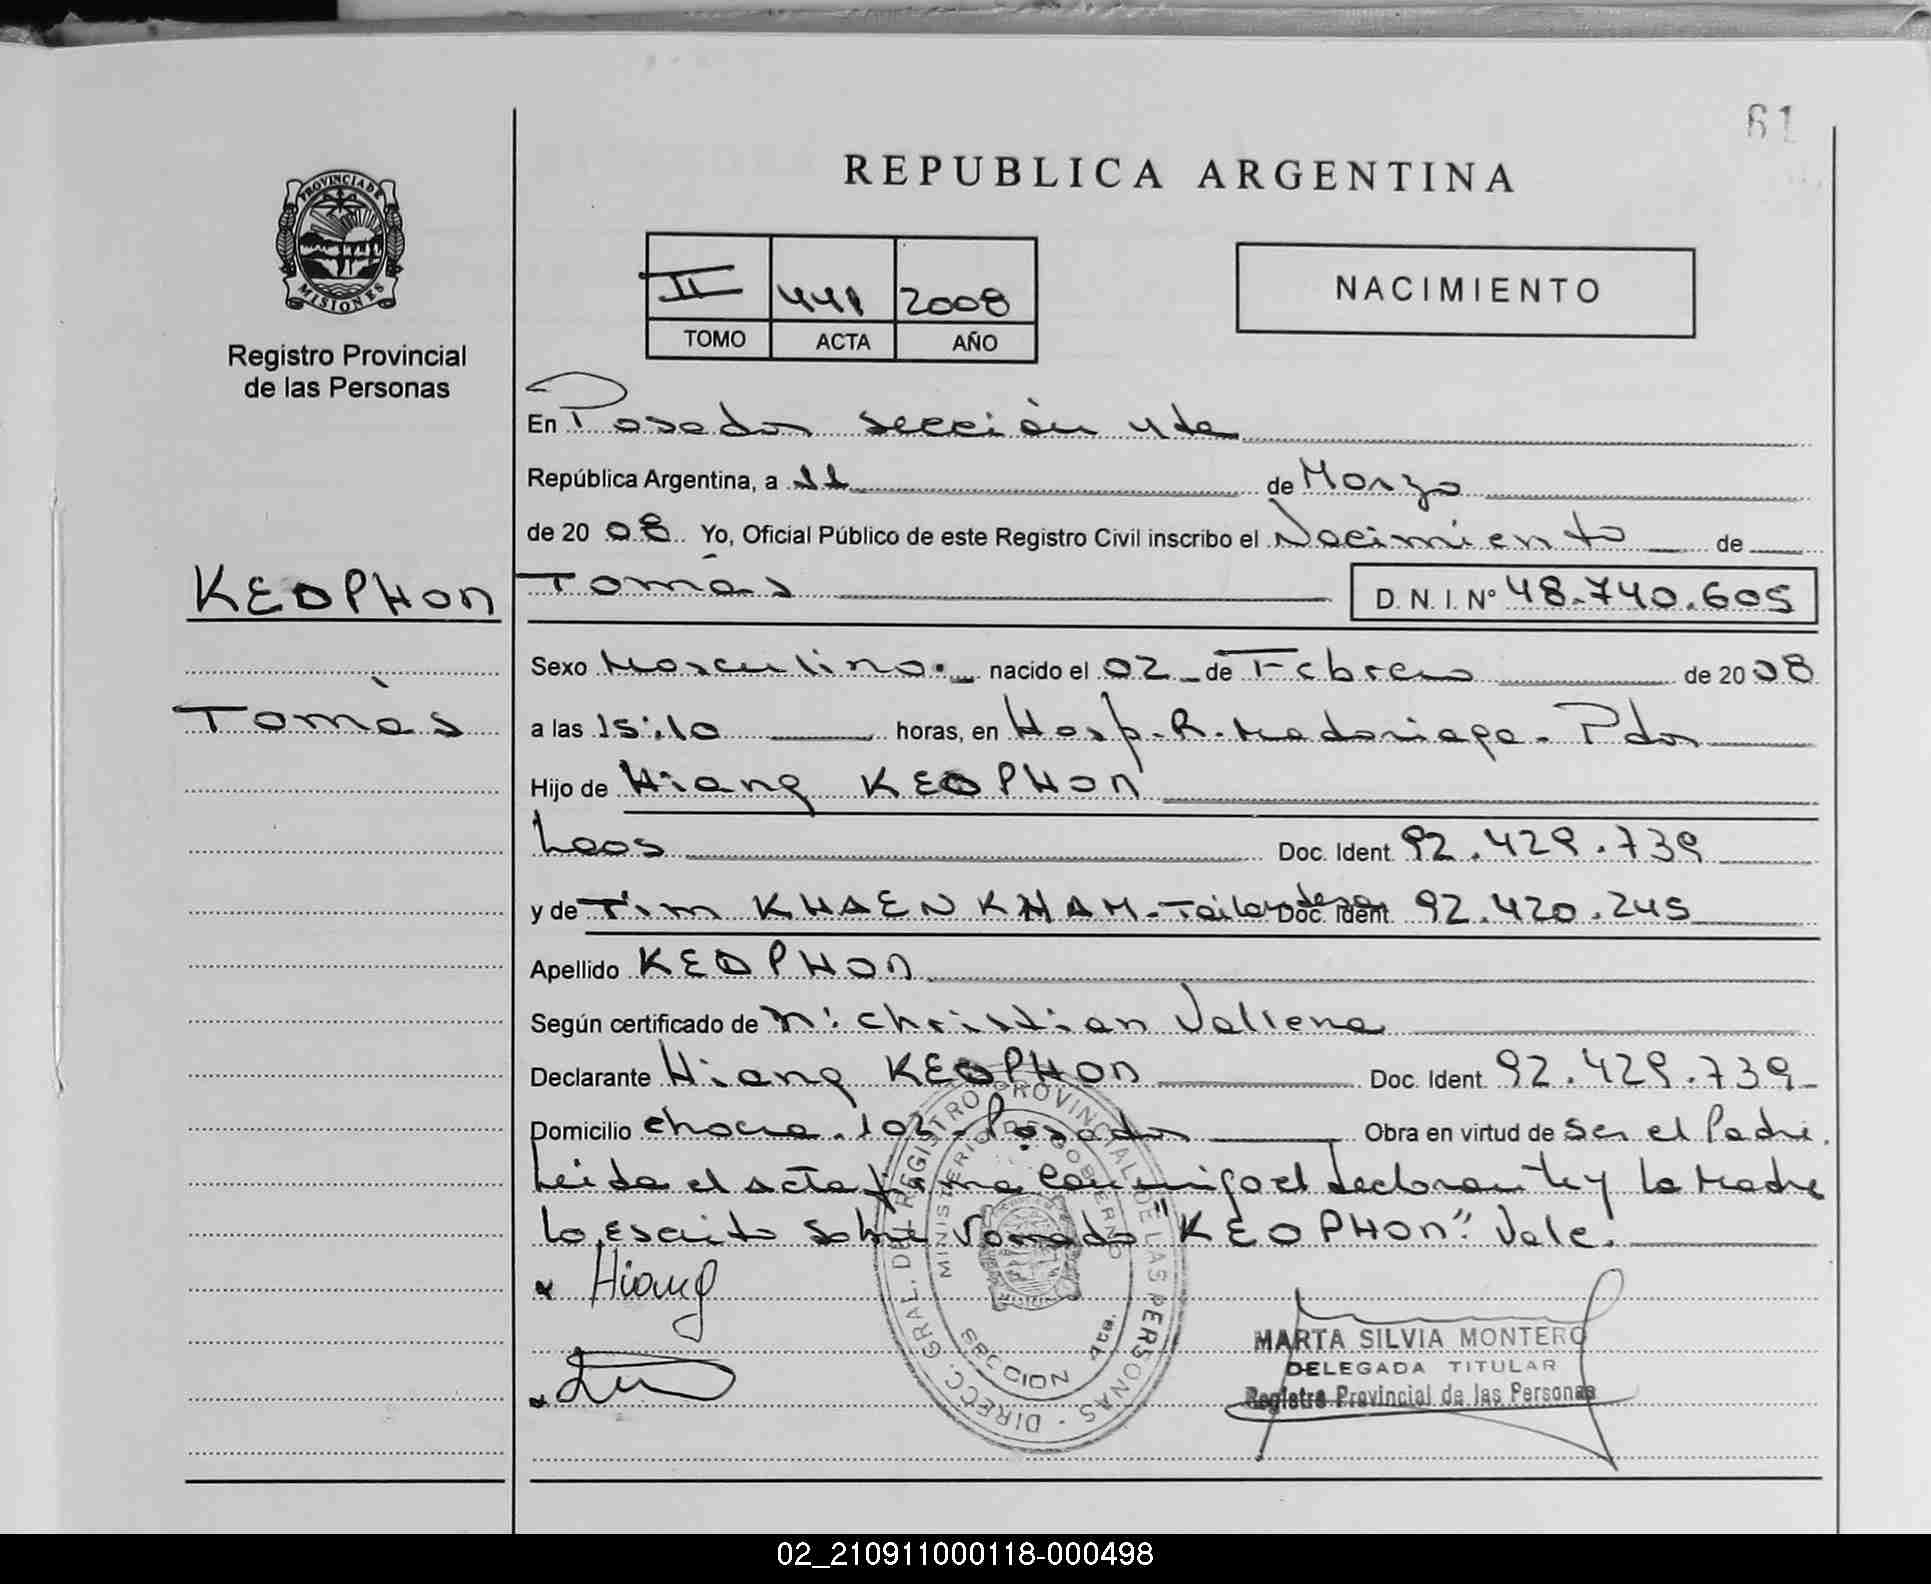 61
REPUBLICA ARGENTINA
PROVINCIA DE
MISIONES
Registro Provincial
de las Personas
II 441 2008
TOMO ACTA AÑO
NACIMIENTO
En Posadas sección 4ta
República Argentina, a 11 de Marzo
de 2008 Yo, Oficial Público de este Registro Civil inscribo el Nacimiento de
KEOPHON
Tomás D. N. I. N° 48.740.605
Tomás
Sexo Masculino. nacido el 02 de Febrero de 2008
a las 15:10 horas, en Hosp. R. Madariaga - Pdas
Hijo de Hiang KEOPHON
Laos Doc. Ident. 92.429.739
y de Tim KHAENKHAM - Tailandesa Doc. Ident. 92.420.245
Apellido KEOPHON
Según certificado de Christian
Declarante Hiang KEOPHON Doc. Ident. 92.429.739
Domicilio chacra 103 - Posadas Obra en virtud de ser el Padre.
Leida el acta firma conmigo el declarante y la Madre
lo escrito sobre "KEOPHON". Vale.
Hiang
DIRECC. GRAL. DEL REGISTRO PROVINCIAL DE LAS PERSONAS
MINISTERIO DE GOBIERNO
SECCION 4ta.
MARTA SILVIA MONTERO
DELEGADA TITULAR
Registro Provincial de las Personas
02_210911000118-000498